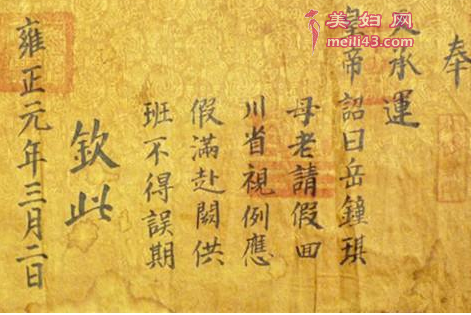 奉
天承運
皇帝詔曰岳鐘琪
母老請假回
川省視例應
假滿赴闕供
班不得誤期
欽此
雍正元年三月二日
美妇网
meili43.com